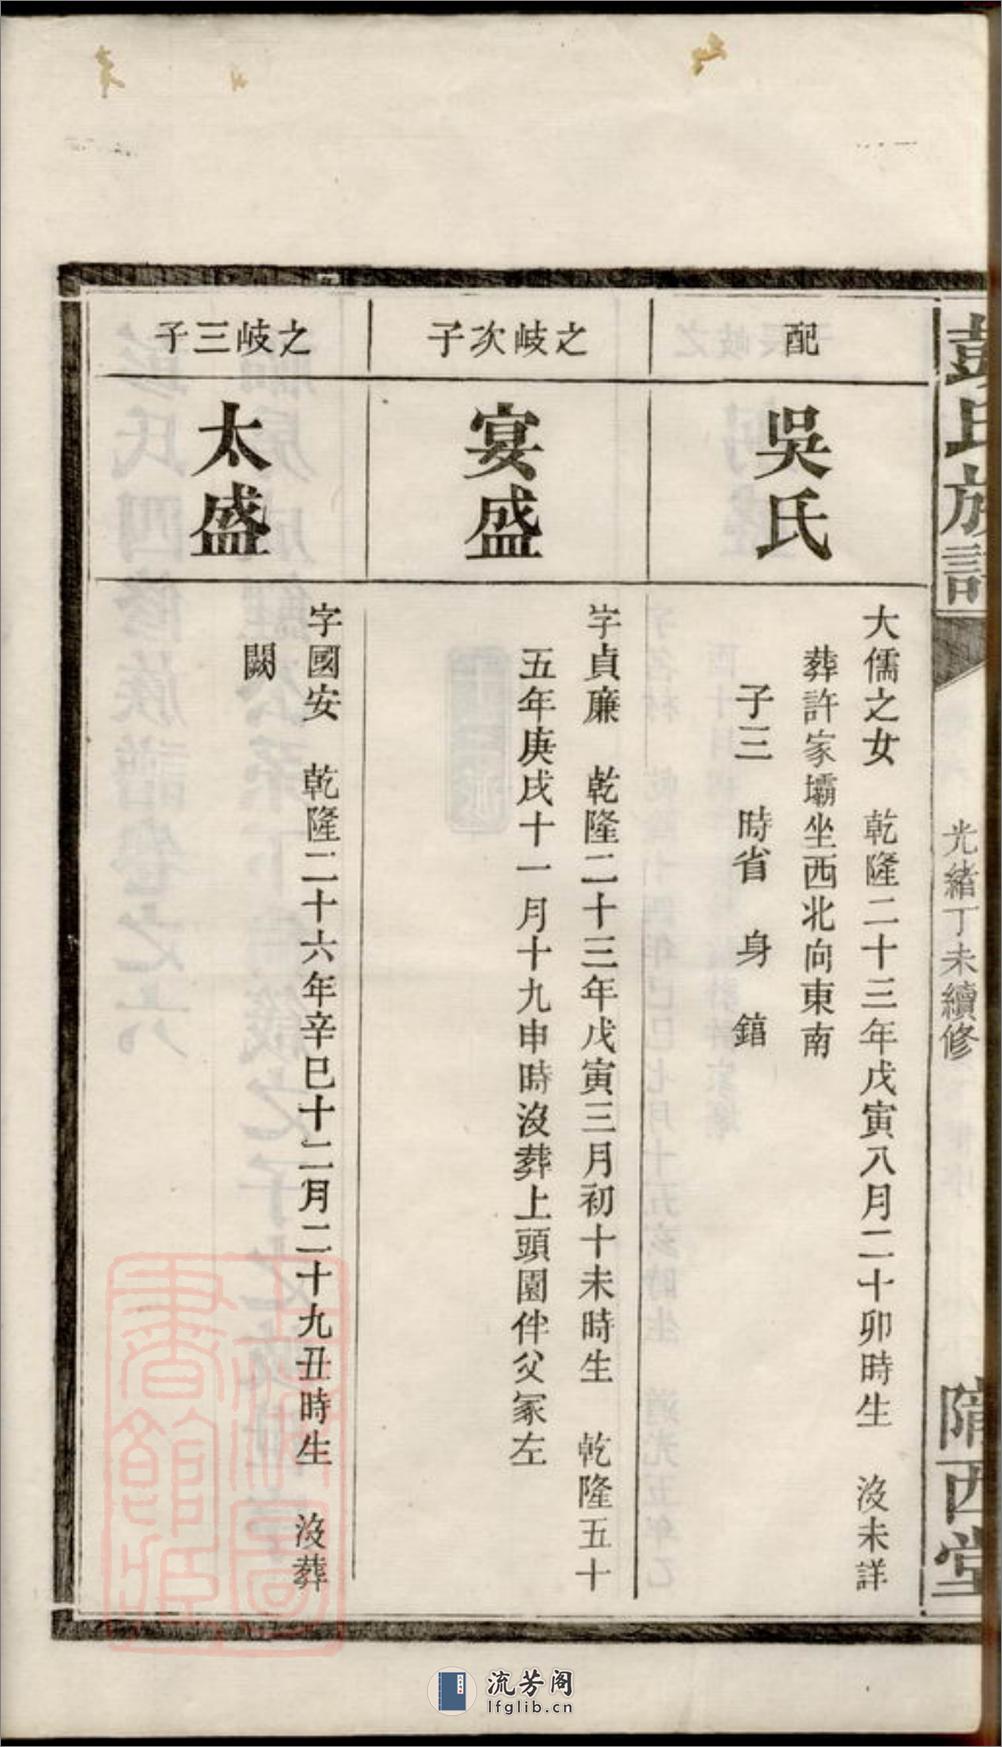 彭氏族譜
光緒丁未續修
隴西堂
配
吳氏
大儒之女　乾隆二十三年戊寅八月二十卯時生　沒未詳
葬許家壩坐西北向東南
子三　時省　身　錧
之岐次子
宴盛
字貞廉　乾隆二十三年戊寅三月初十未時生　乾隆五十
五年庚戌十一月十九申時沒葬上頭園伴父冢左
之岐三子
太盛
字國安　乾隆二十六年辛巳十二月二十九丑時生　沒葬
闕
流芳阁
lfglib.cn